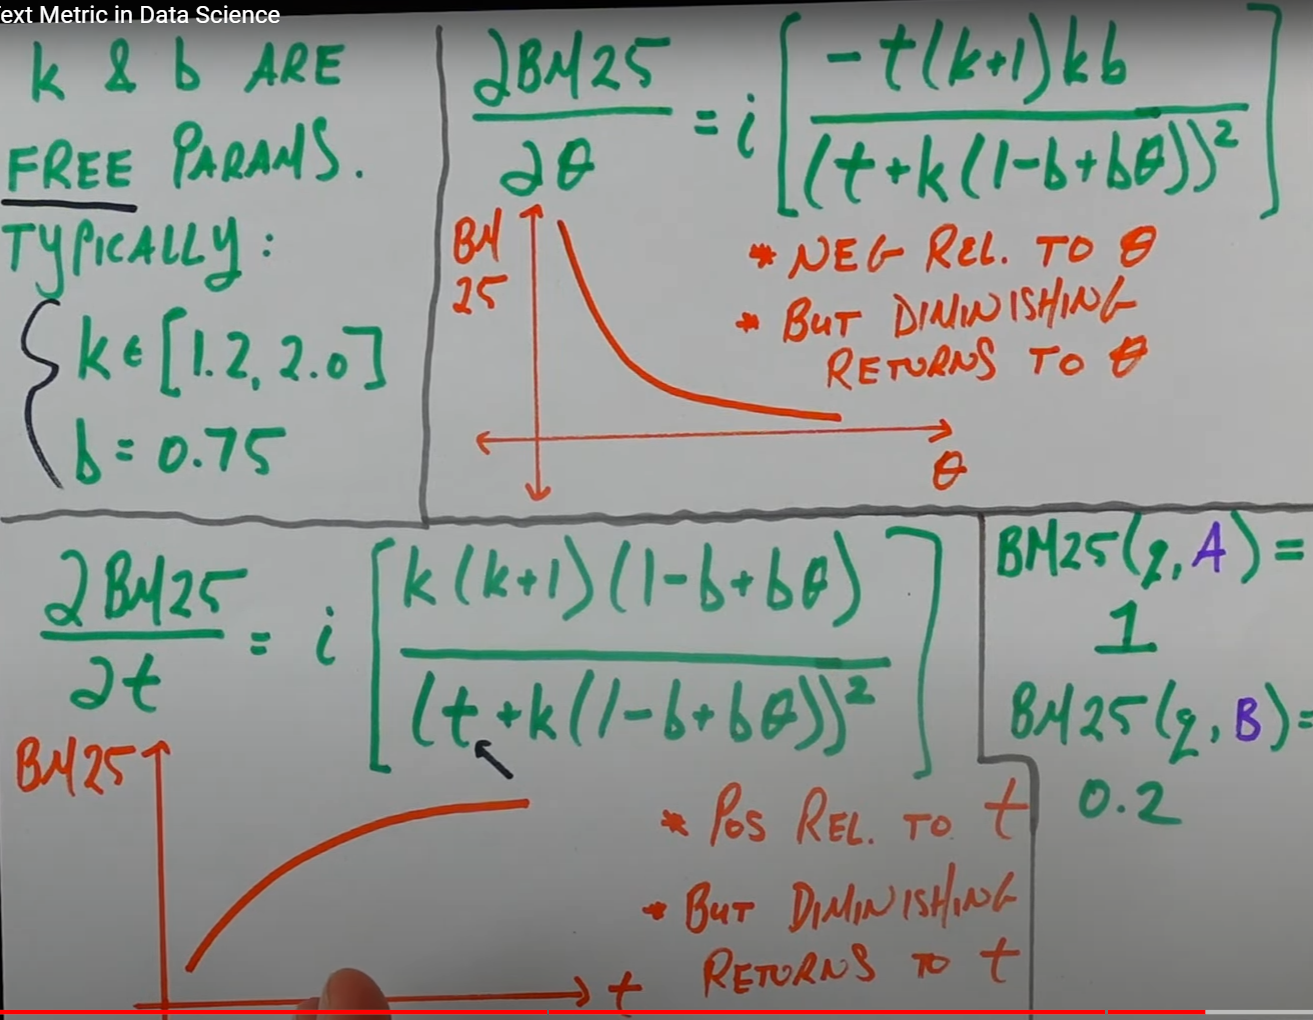 ext Metric in Data Science
k & b ARE
FREE PARAMS.
TYPICALLY:
k ∈ [1.2, 2.0]
b = 0.75
∂BM25
∂θ
= i [ -t(k+1)kb
(t+k(1-b+bθ))² ]
BM
25
* NEG REL. TO θ
* BUT DIMINISHING
RETURNS TO θ
θ
∂BM25
∂t
= i [ k(k+1)(1-b+bθ)
(t+k(1-b+bθ))² ]
BM25
* POS REL. TO t
* BUT DIMINISHING
RETURNS TO t
t
BM25(q, A) =
1
BM25(q, B) =
0.2